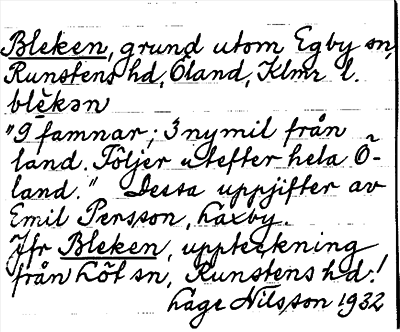 Bleken, grund utom Egby sn,
Runstens hd, Öland, Klmr l.
blèkən
"9 famnar; 3 nymil från
land. Följer utefter hela Ö-
land." Dessa uppjifter av
Emil Persson, Laxby.
Jfr Bleken, uppteckning
från Löt sn, Runstens hd!
Lage Nilsson 1932